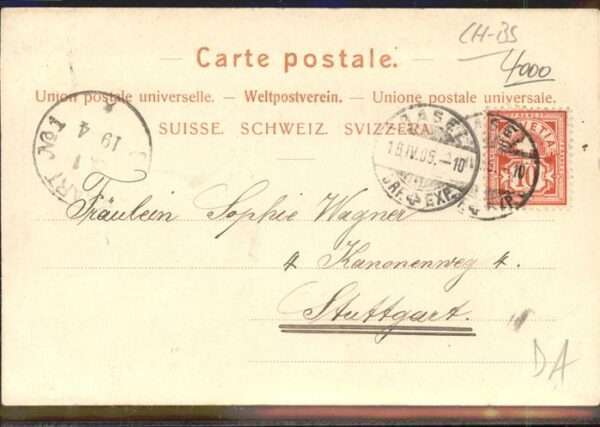 CH-BS
4000
Carte postale.
Union postale universelle. – Weltpostverein. – Unione postale universale.
SUISSE. SCHWEIZ. SVIZZERA.
BASEL
18.IV.05.–10
BRF. EXP.
HELVETIA
10
ART No 1
19 4
Fräulein Sophie Wagner
4 Kanonenweg 4.
Stuttgart.
DA